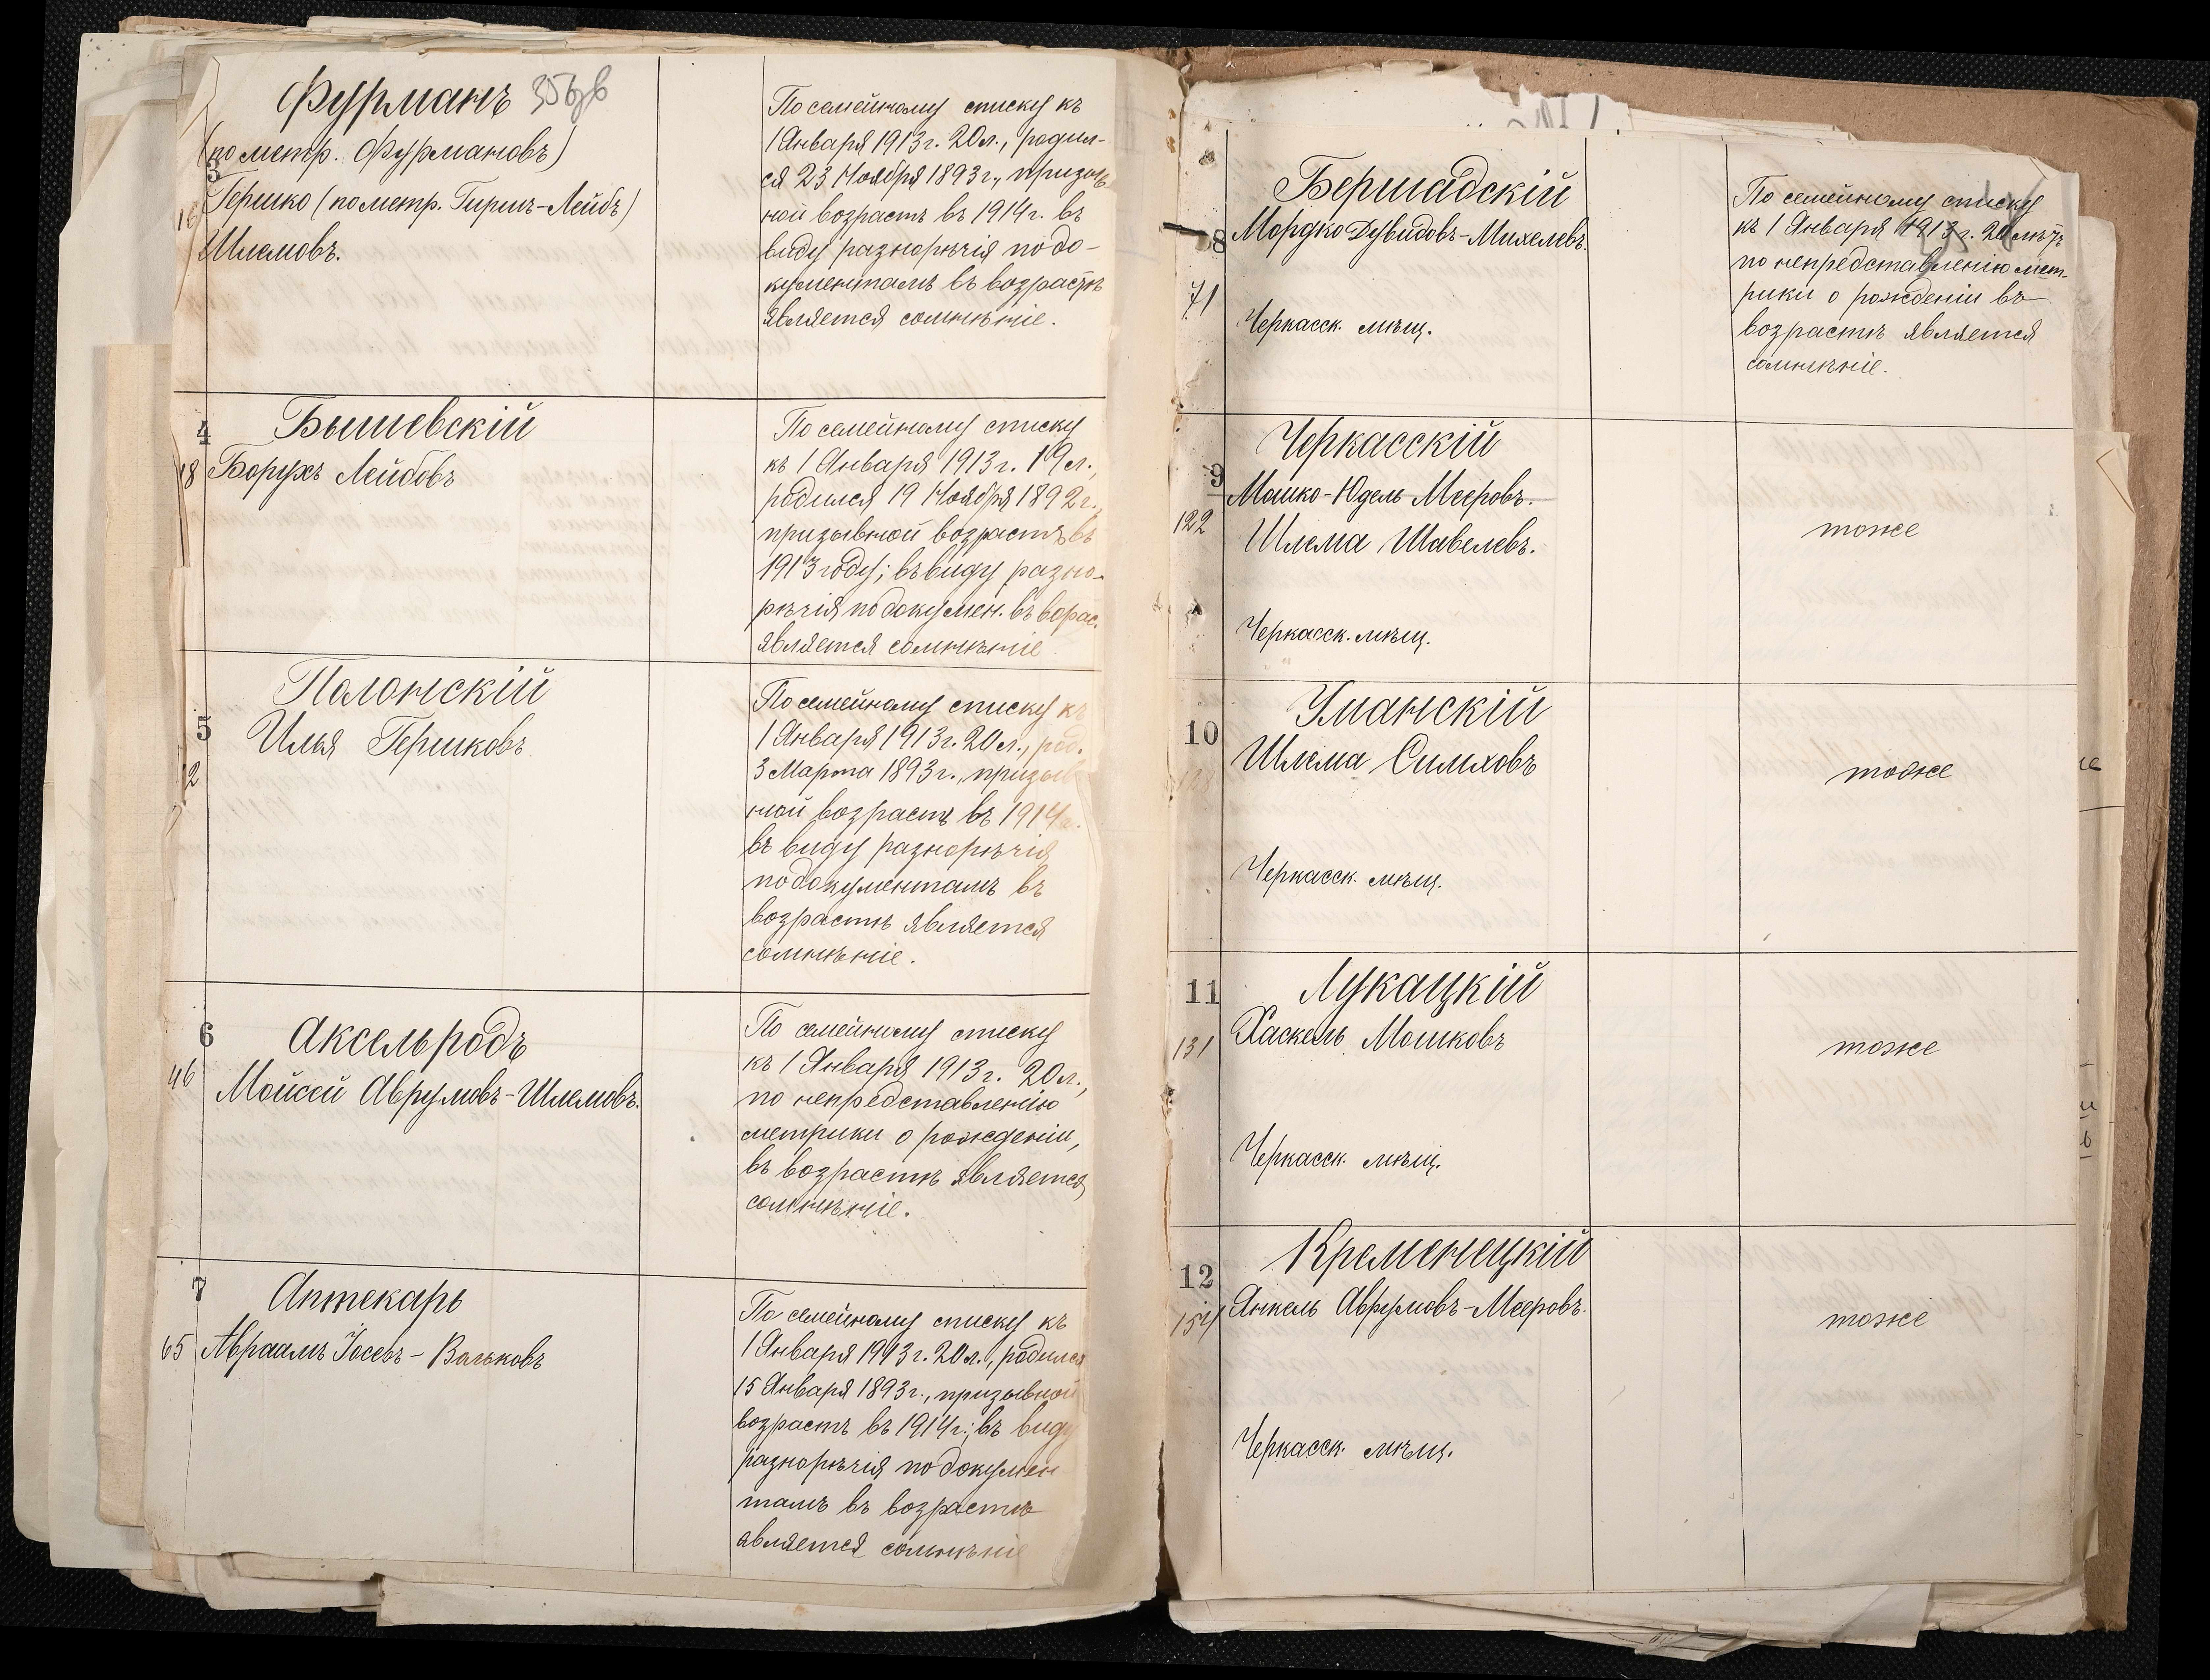 Фурманъ
(по метр. Фурмановъ)
3
Гершко (по метр. Гиршъ-Лейбъ)
Шлемовъ.
По семейному списку къ
1 Января 1913 г. 20 л., родил-
ся 23 Ноября 1893 г., призыв
ной возрастъ въ 1914 г. въ
виду разнорѣчія по до-
кументамъ въ возрастѣ
является сомнѣніе.
4
18
Бышевскій
Борухъ Лейбовъ
По семейному списку
къ 1 Января 1913 г. 19 л.,
родился 19 Ноября 1892 г.,
призывной возрастъ въ
1913 году; въ виду разно-
рѣчія по докумен. въ ворас.
является сомнѣніе
5
12
Полонскій
Илья Гершковъ
По семейному списку къ
1 Января 1913 г. 20 л., род.
3 Марта 1893 г., призыв
ной возрастъ въ 1914 г.
въ виду разнорѣчія
по документамъ въ
возрастѣ является
сомнѣніе.
6
46
Аксельродъ
Мойсей Аврумовъ-Шлемовъ.
По семейному списку
къ 1 Января 1913 г. 20 л.,
по непредставленію
метрики о рожденіи,
въ возрастѣ является
сомнѣніе.
7
65
Аптекарь
Авраамъ Іосевъ-Вольковъ
По семейному списку къ
1 Января 1913 г. 20 л., родился
15 Января 1893 г., призывной
возрастъ въ 1914 г.; въ виду
разнорѣчія по докумен
тамъ въ возрастѣ
является сомнѣніе
8
71
Бершадскій
Мордко Дувидовъ-Михелевъ.
Черкасск. мѣщ.
По семейному списку
къ 1 Января 1913 г. 20 лѣтъ
по непредставленію мет-
рики о рожденіи въ
возрастѣ является
сомнѣніе.
9
122
Черкасскій
Мошко-Юдель Мееровъ.
Шлема Шавелевъ.
Черкасск. мѣщ.
тоже
10
Уманскій
Шлема Симховъ
Черкасск. мѣщ.
тоже
11
131
Лукацкій
Хаскель Мошковъ
Черкасск. мѣщ.
тоже
12
154
Кременецкій
Янкель Аврумовъ-Мееровъ.
Черкасск. мѣщ.
тоже